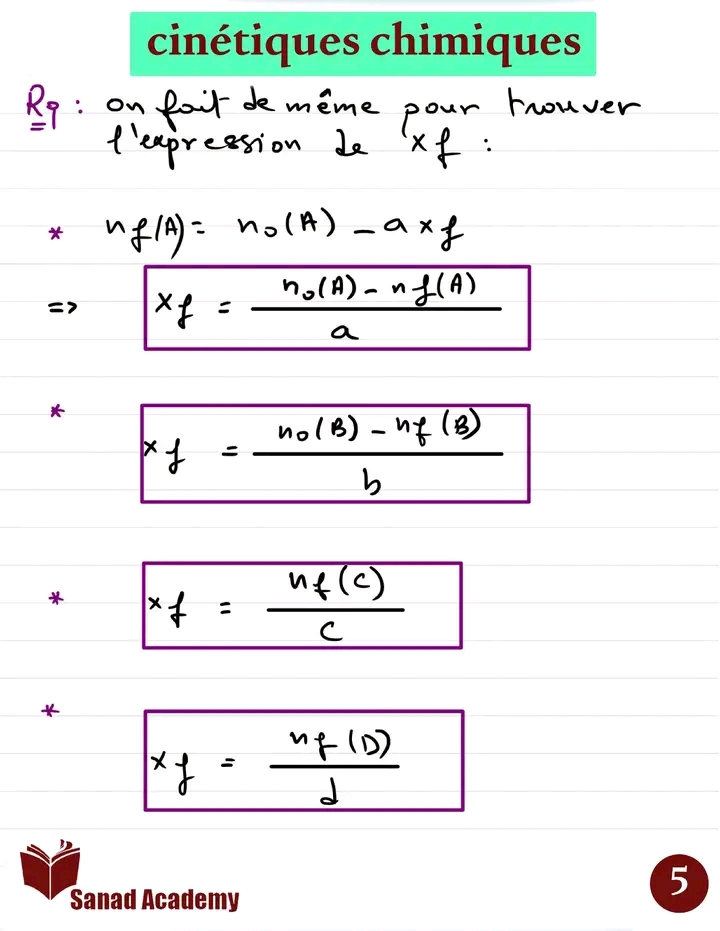 cinétiques chimiques
Rq : on fait de même pour trouver
l'expression de xf :
* nf(A) = n₀(A) - a xf
=> xf = (n₀(A) - nf(A)) / a
* xf = (n₀(B) - nf(B)) / b
* xf = nf(C) / c
* xf = nf(D) / d
Sanad Academy
5